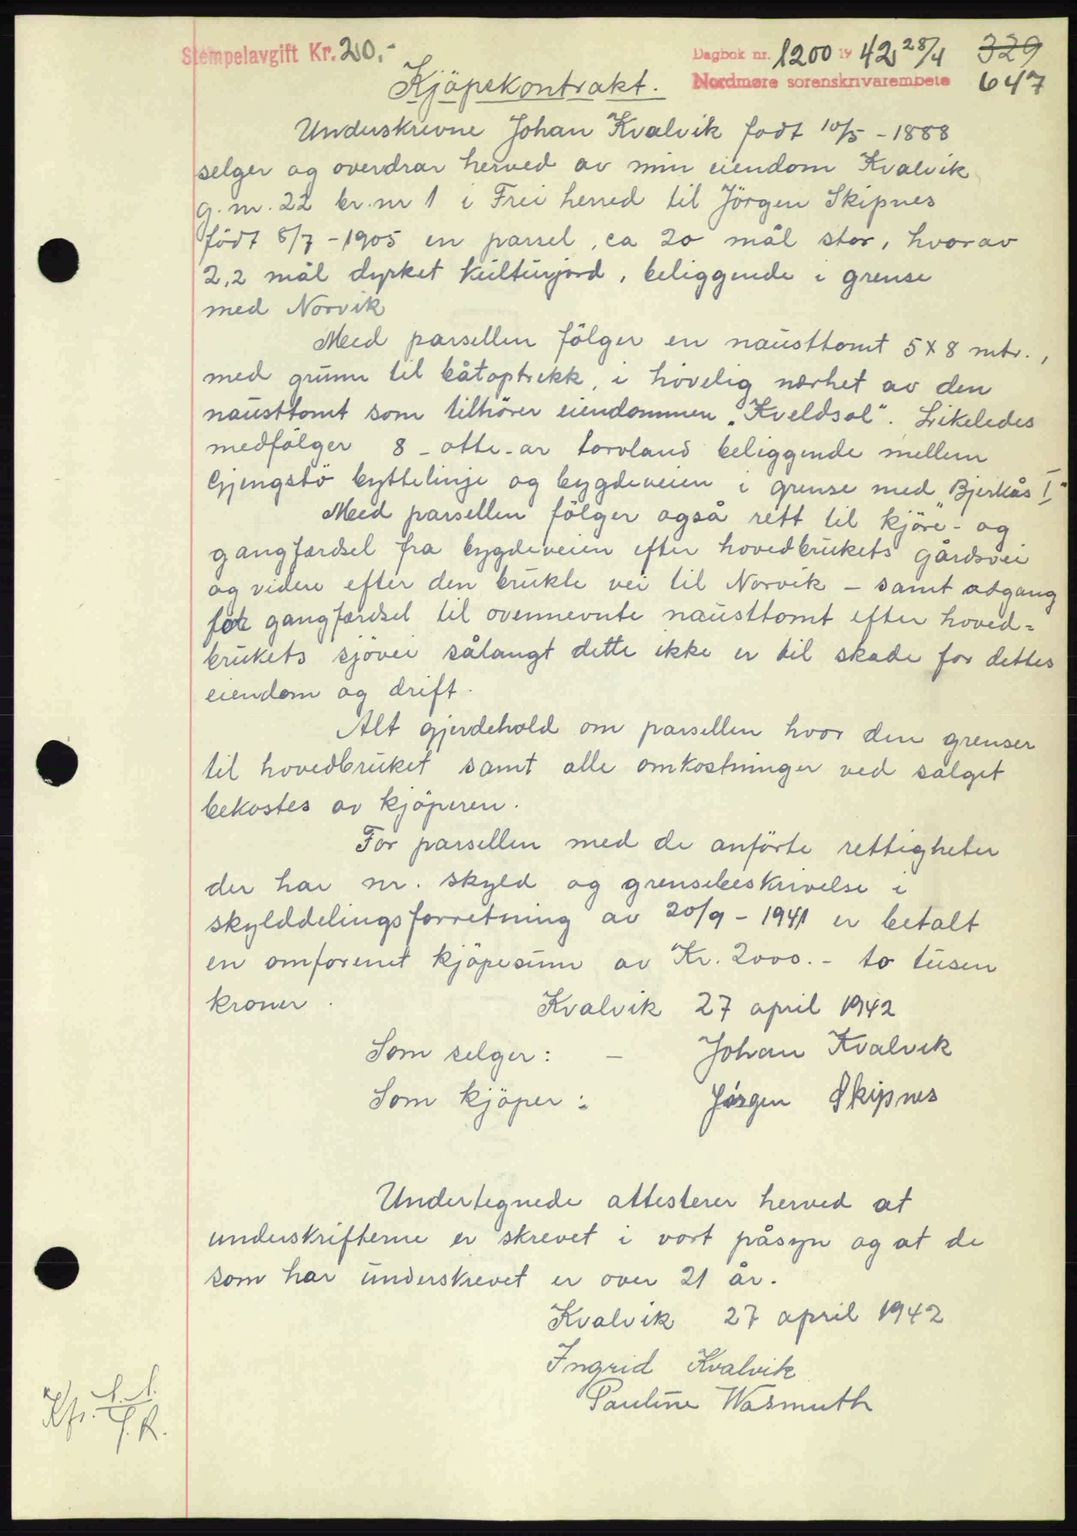 Stempelavgift Kr. 20.-
Dagbok nr. 1200 1942 28/4 329
Nordmøre sorenskrivarembete 647
Kjöpekontrakt.
Underskrevne Johan Kvalvik født 10/5 - 1888
selger og overdrar herved av min eiendom Kvalvik
g.nr. 22 br.nr 1 i Frei herred til Jörgen Skipnes
födt 8/7 - 1905 en parsel, ca 20 mål stor, hvorav
2,2 mål dyrket kulturjord, beliggende i grense
med Norvik
Med parsellen fölger en nausttomt 5 x 8 mtr.,
med grunn til båtoptrekk, i hövelig nærhet av den
nausttomt som tilhörer eiendommen "Kveldsol". Likeledes
medfölger 8 - otte - ar torvland beliggende mellem
Gjengstö byttelinje og bygdeveien i grense med Bjerkås I"
Med parsellen fölger også rett til kjöre- og
gangferdsel fra bygdeveien efter hovedbrukets gårdsvei
og videre efter den brukte vei til Norvik - samt adgang
for gangferdsel til ovennevnte nausttomt efter hoved=
brukets sjövei sålangt dette ikke er til skade for dettes
eiendom og drift.
Alt gjerdehold om parsellen hvor den grenser
til hovedbruket samt alle omkostninger ved salget
bekostes av kjöperen.
For parsellen med de anförte rettigheter
der har nr. skyld og grensebeskrivelse i
skylddelingsforretning av 20/9 - 1941 er betalt
en omforenet kjöpesum av Kr. 2000.- to tusen
kroner.
Kvalvik 27 april 1942
Som selger: - Johan Kvalvik
Som kjöper: Jørgen Skipnes
Undertegnede attesterer herved at
underskrifterne er skrevet i vort påsyn og at de
som har underskrevet er over 21 år.
Kvalvik 27 april 1942
Ingrid Kvalvik
Pauline Wasmuth
Kfr.